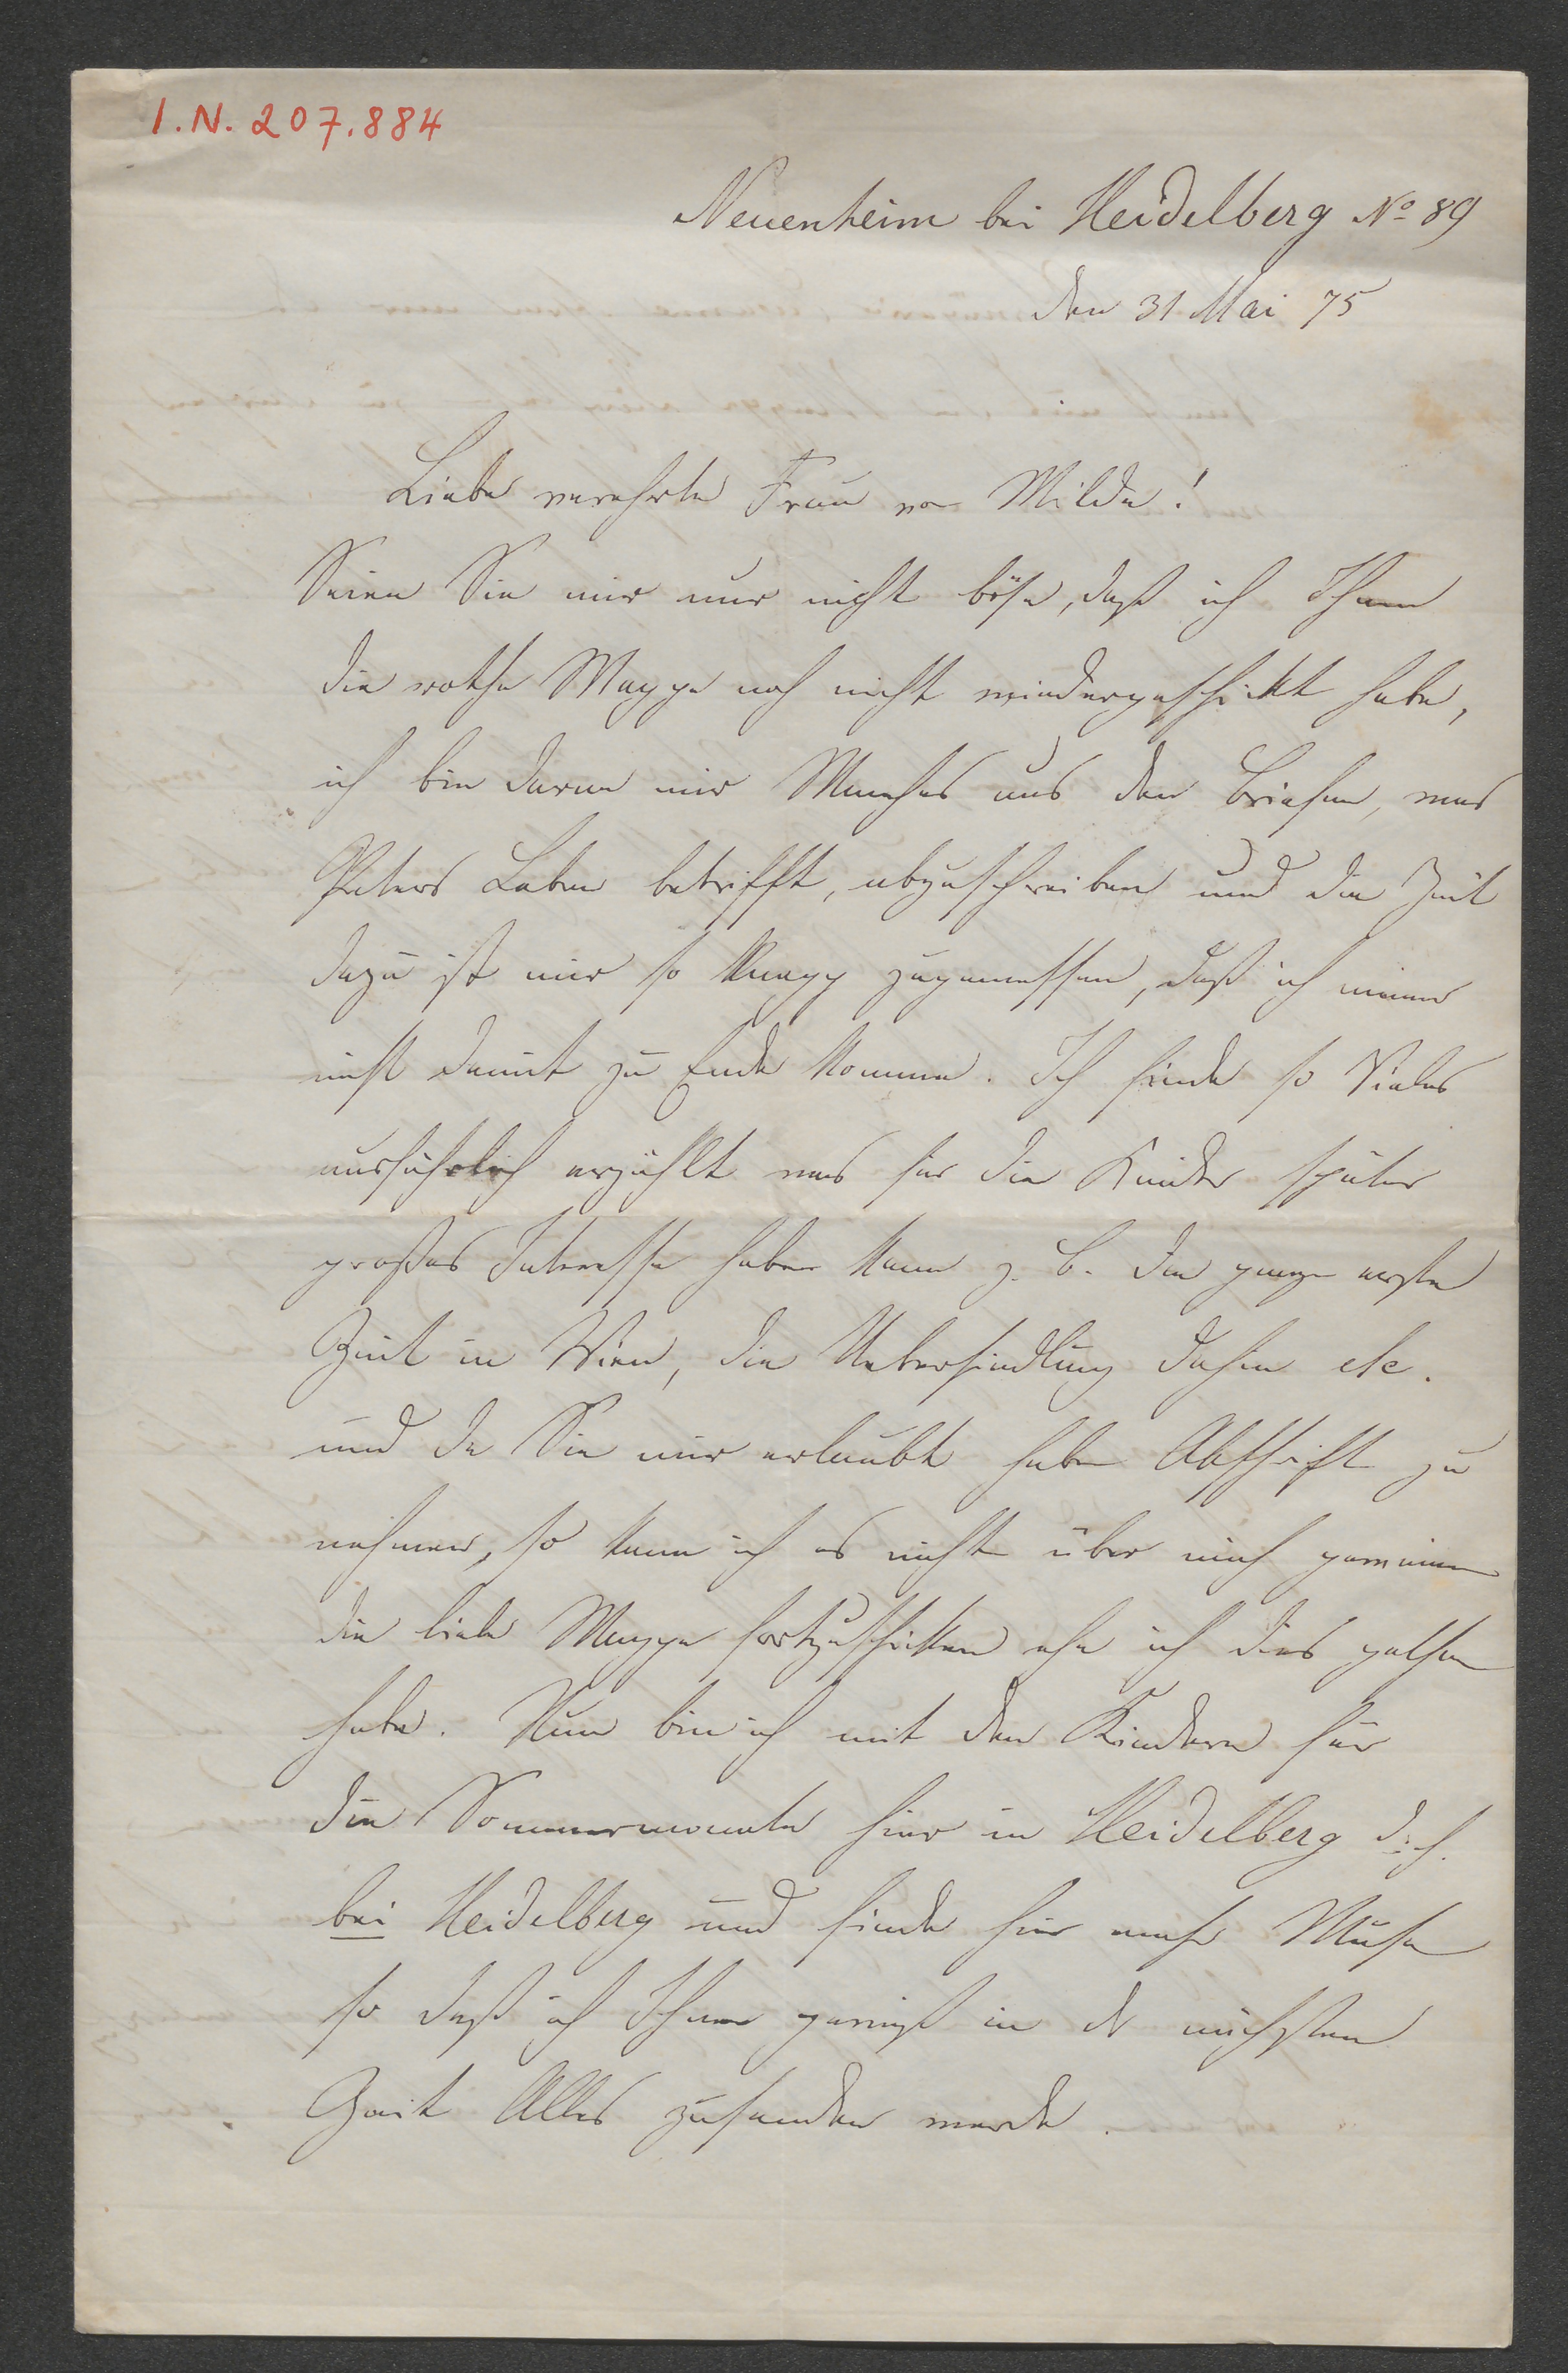 I.N. 207.884
Neuenheim bei Heidelberg No 89
den 31 Mai 75
Liebe verehrte Frau von Milde!
Seien Sie mir nur nicht böse, daß ich Ihnen
die rothe Mappe noch nicht wiedergeschickt habe,
ich bin daran mir Manches aus den Briefen, was
Peters Leben betrifft, abzuschreiben und die Zeit
dazu ist mir so knapp zugemessen, daß ich immer
nicht damit zu Ende komme. Ich finde so Vieles
ausführlich erzählt was für die Kinder später
großes Interesse haben kann z. B. die ganze erste
Zeit in Wien, die Uebersiedlung dahin etc.
und da Sie mir erlaubt haben Abschrift zu
nehmen, so kann ich es nicht über mich gewinnen
die liebe Mappe fortzuschicken ehe ich dies gethan
habe. Nun bin ich mit den Kindern für
die Sommermonate hier in Heidelberg d. h.
bei Heidelberg und finde hier mehr Muße
so daß ich Ihnen gewiß in der nächsten
Zeit Alles zusenden werde.